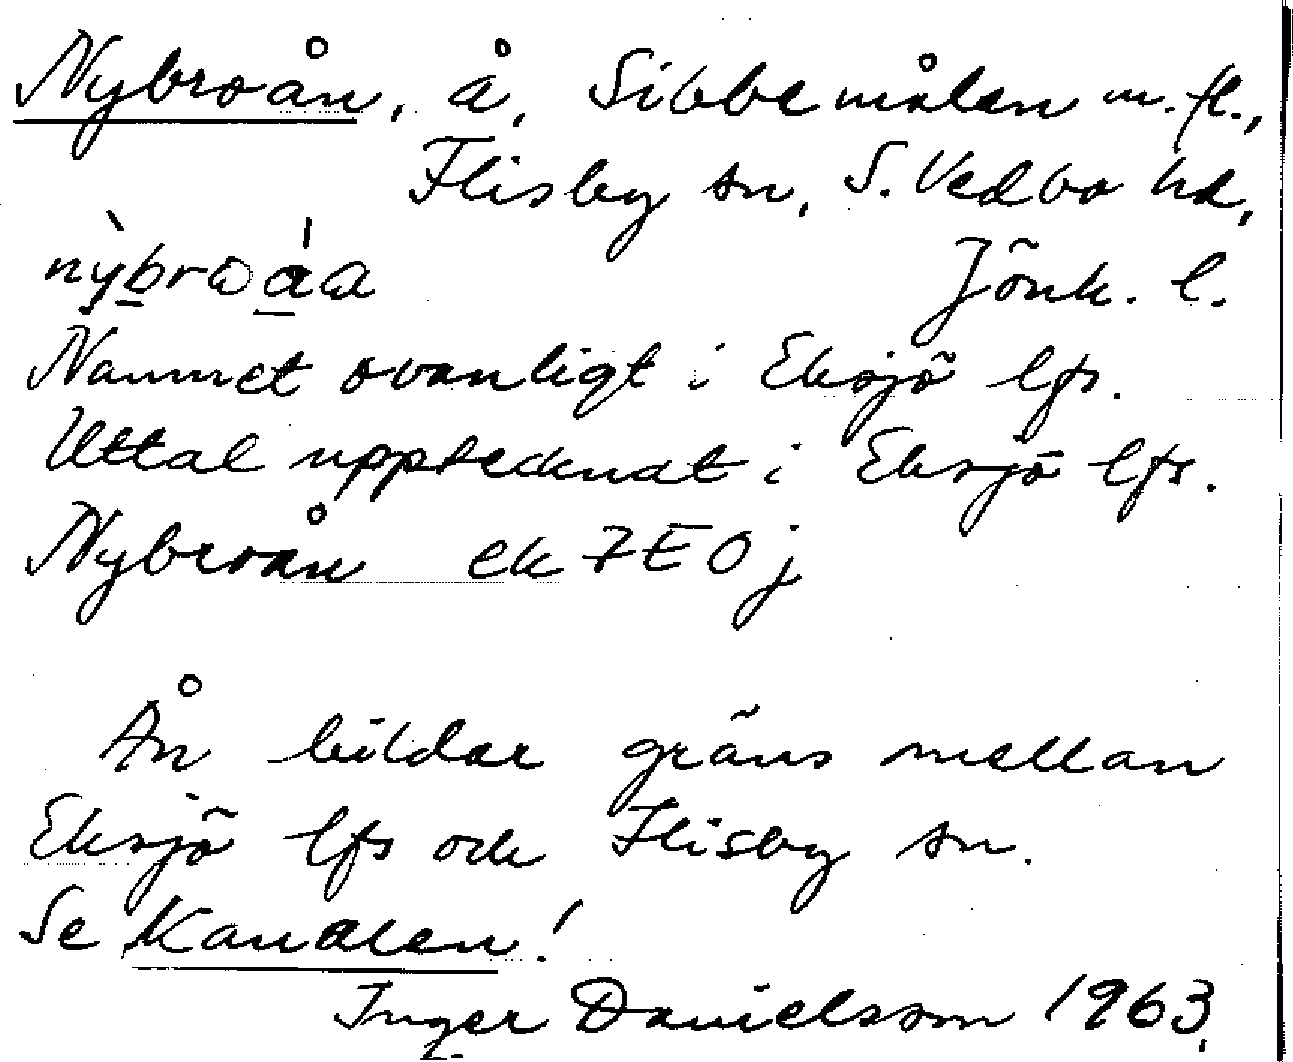 Nybroån, å, Sibbemålen m.fl.,
Flisby sn, S. Vedbo hd,
Jönk. l.
Namnet ovanligt i Eksjö lfs.
Uttal upptecknat i Eksjö lfs.
Nybroån ek 7E0j
Ån bildar gräns mellan
Eksjö lfs och Flisby sn.
Se Kanalen!
Inger Danielsson 1963